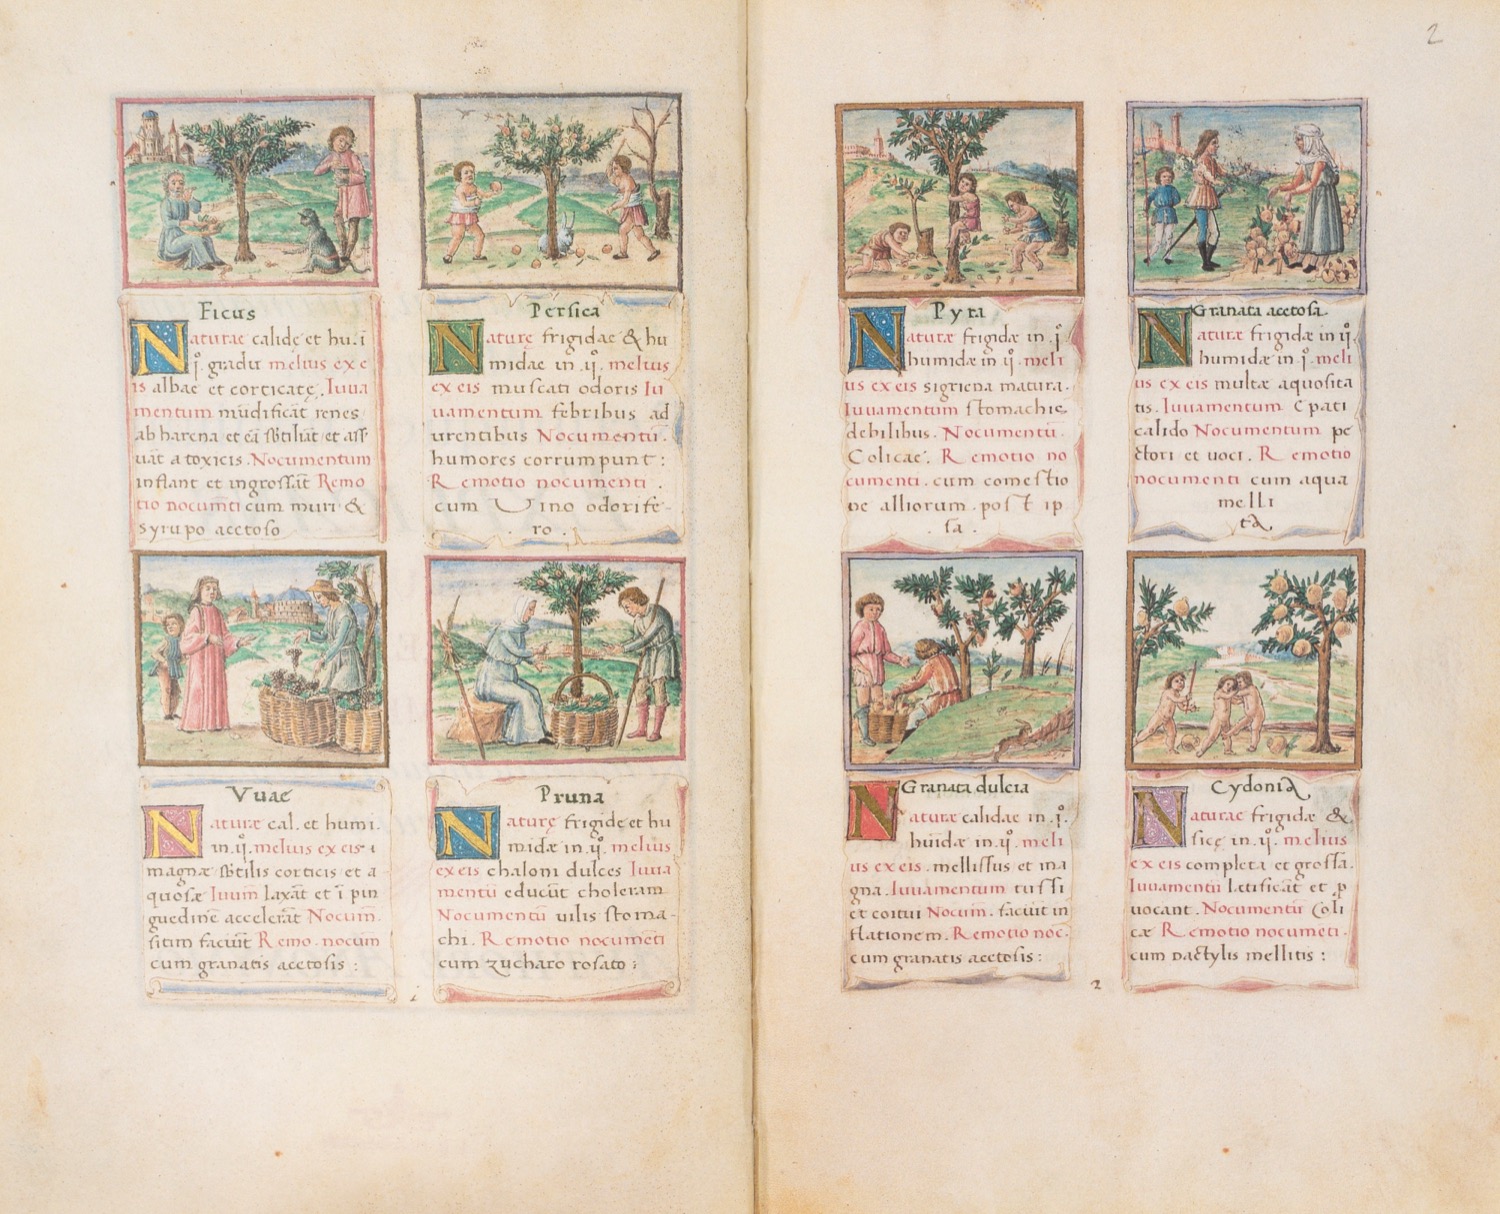 Ficus
Naturae calidę et hu. i
i. gradu melius ex e
is albae et corticatę. Iuua
mentum mūdificāt renes
ab harena et eā sb̄tiliāt et ass
uāt a toxicis. Nocumentum
inflant et ingrossāt Remo
tio nocum̄ti cum muri &
syrupo acetoso
Persica
Naturę frigidae & hu
midae in .ij. melius
ex eis muscati odoris Iu
uamentum febribus ad
urentibus Nocumentū.
humores corrumpunt:
Remotio nocumenti.
cum Vino odorife-
.ro.
Vuae
Naturæ cal. et humi.
in .ij. melius ex eis i
magnæ sb̄tilis corticis et a
quosæ Iuum̄ laxāt et ī pin
guedinē accelerāt Nocum̄.
sitim faciūt Remo. nocum
cum granatis acetosis:
Pruna
Naturę frigidę et hu
midæ in .ij. melius
ex eis chaloni dulces Iuua
mentū educūt choleram
Nocumentū uilis stoma-
chi. Remotio nocumēti
cum zucharo rosato:
i
2
Pyra
Naturæ frigidæ in .i.
humidæ in .ij. meli
us ex eis sigriena matura.
Iuuamentum stomachis
debilibus. Nocumentū.
Colicae. Remotio no
cumenti. cum comestio
ne alliorum post ip
.sa.
Granata acetosa.
Naturæ frigidæ in ij.
humidæ in .i. meli
us ex eis multæ aquosita
tis. Iuuamentum Epati
calido Nocumentum pe
ctori et uoci. Remotio
nocumenti cum aqua
melli
ta.
Granata dulcia
Naturæ calidae in .i.
hūidæ in .ij. meli
us ex eis. mellissus et ma
gna. Iuuamentum tussi
et coitui Nocum̄. faciūt in
flationem. Remotio noc.
cum granatis acetosis:
Cydonia.
Naturae frigidæ &
sicę in .ij. melius
ex eis completa et grossa.
Iuuamentū Lętificāt et p
uocant. Nocumentū Coli
cæ Remotio nocumēti.
cum dactylis mellitis:
2